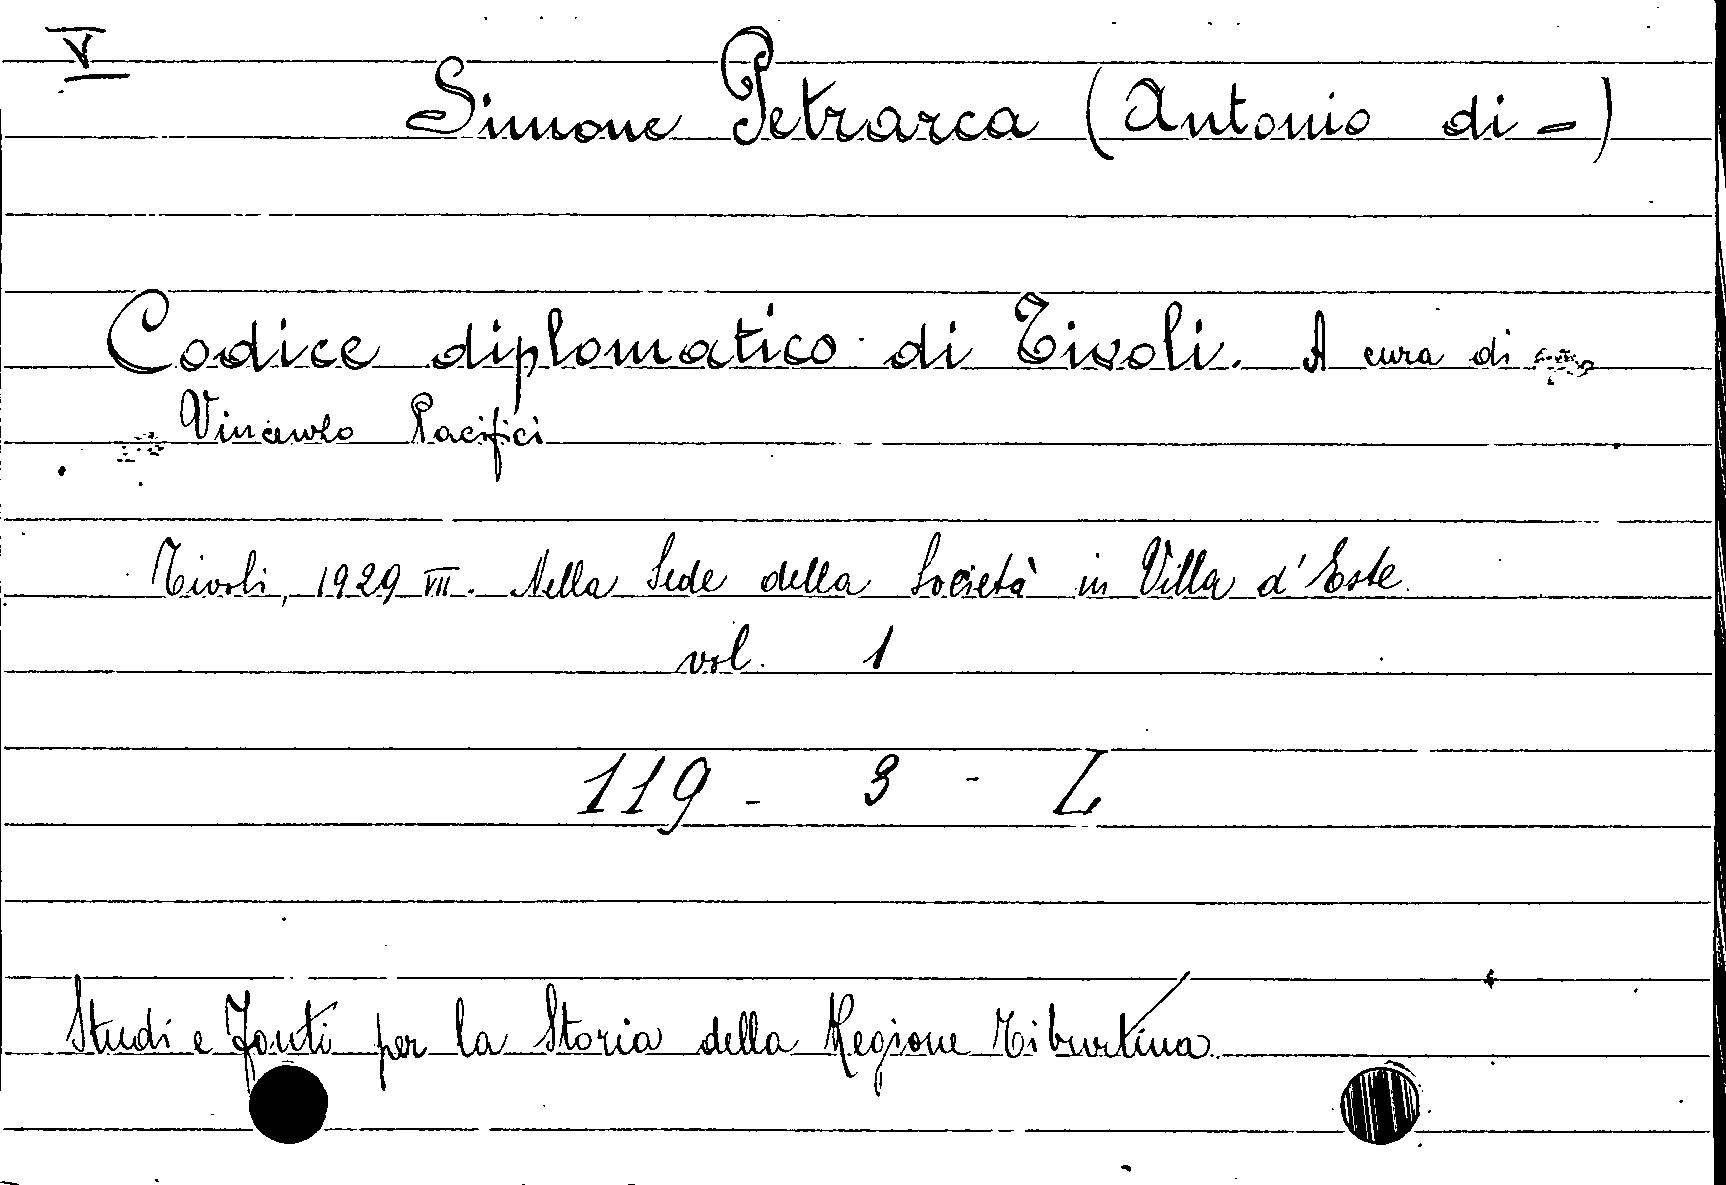 V
Simone Petrarca (Antonio di -)
Codice diplomatico di Tivoli. A cura di
Vincenzo Pacifici
Tivoli, 1929 VII. Nella Sede della Società in Villa d'Este
vol. 1
119 - 3 - L
Studi e Fonti per la Storia della Regione Tiburtina